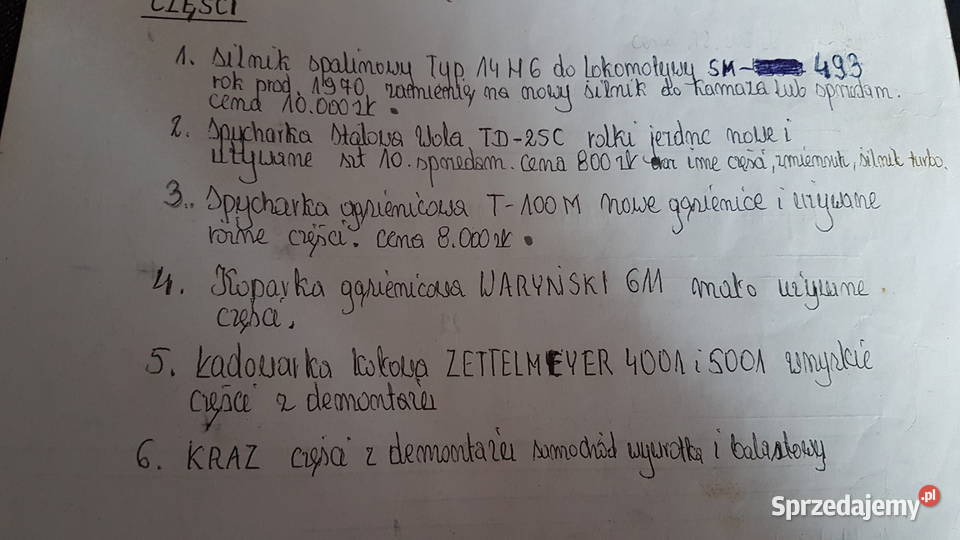 CZĘŚCI
1. Silnik spalinowy Typ 14H6 do lokomotywy SM- 493
rok prod. 1970, zamienię na nowy silnik do Kamaza lub sprzedam.
cena 10.000zł.
2. Spycharka Stalowa Wola TD-25C rolki jezdne nowe i
używane szt 10. sprzedam. cena 800zł inne części, zmiennik, silnik turbo.
3. Spycharka gąsienicowa T-100M nowe gąsienice i używane
różne części. cena 8.000zł.
4. Koparka gąsienicowa WARYŃSKI 611 mało używane
części.
5. Ładowarka kołowa ZETTELMEYER 4001 i 5001 wszyskie
części z demontażu
6. KRAZ części z demontażu samochód wywrotka i balastowy
Sprzedajemy.pl